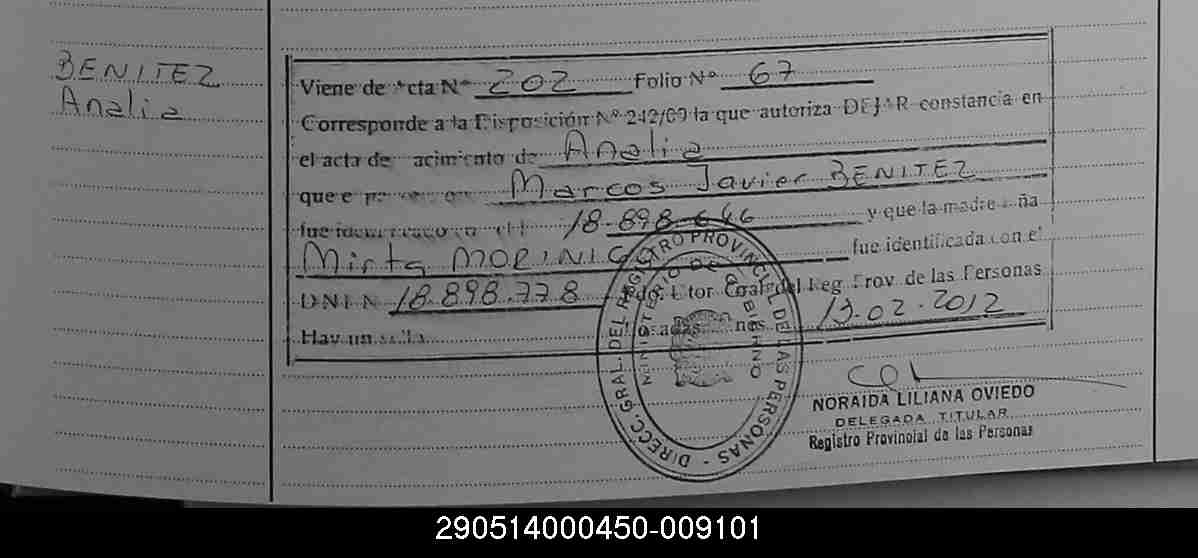 BENITEZ
Analia
Viene de Acta Nº 202 Folio Nº 67
Corresponde a la Disposición Nº 242/09 la que autoriza DEJAR constancia en
el acta de nacimiento de Analia
que Marcos Javier BENITEZ
fue 18.898.646 y que la madre
Mirta MORINIGO fue identificada con el
DNI N 18.898.778 Gral. del Reg. Prov. de las Personas
13.02.2012
Hay un sello
DIRECC. GRAL. DEL REGISTRO PROVINCIAL DE LAS PERSONAS
MINISTERIO DE GOBIERNO
NORAIDA LILIANA OVIEDO
DELEGADA TITULAR
Registro Provincial de las Personas
290514000450-009101